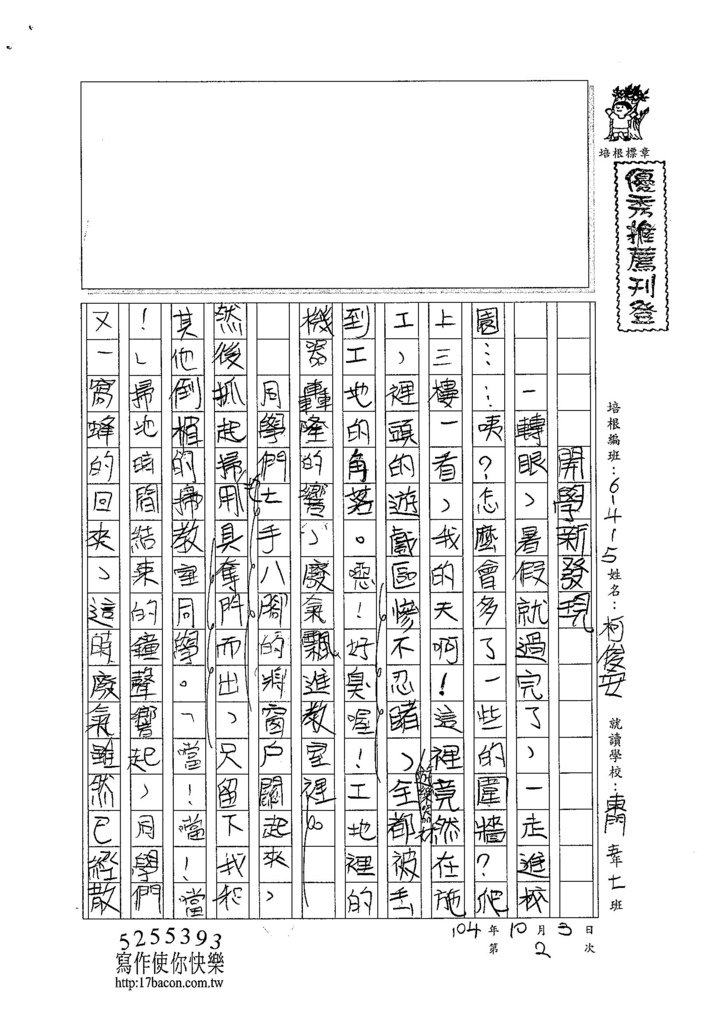 培根標章
優秀推薦刊登
培根編班：6-415 姓名：柯俊安 就讀學校：東門 五年七班
104年10月3日
第2次
開學新發現
一轉眼，暑假就過完了，一走進校
園……咦？怎麼會多了一些的圍牆？爬
上三樓一看，我的天啊！這裡竟然在施
工，裡頭的遊戲區慘不忍睹，全都被丟
到工地的角落。噁！好臭喔！工地裡的
機器轟隆的響，廢氣飄進教室裡。
同學們七手八腳的將窗戶關起來，
然後抓起掃用具奪門而出，只留下我和
其他倒楣的掃教室同學。「噹！噹！噹
！」掃地時間結束的鐘聲響起，同學們
又一窩蜂的回來，這時廢氣雖然已經散
5255393
寫作使你快樂
http:17bacon.com.tw